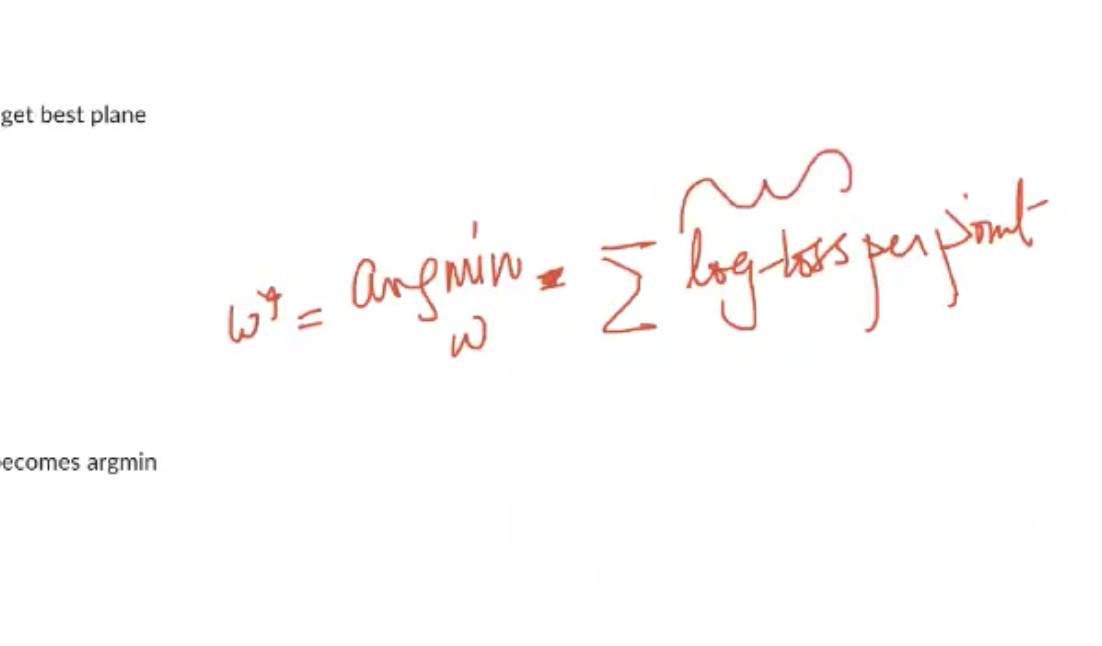 get best plane
w* = argmin Σ log-loss per point
w
ecomes argmin